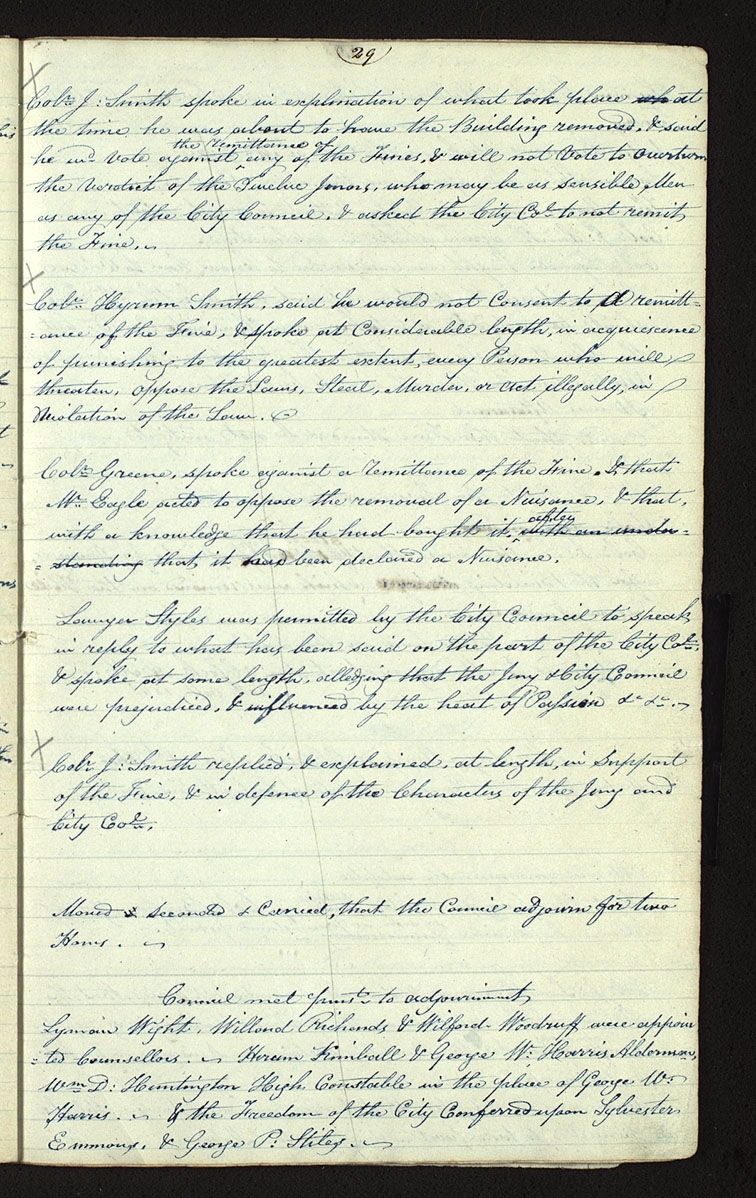 29
Colr. J: Smith spoke in explination of what took place wh at
the time he was about to have the Building removed, & said
the remittance of
he wd. Vote against any of the Fines, & will not Vote to overturn
the Verdict of the Twelve Jurors, who may be as sensible Men
as any of the City Council, & asked the City Col. to not remit
the Fine.
Colr. Hyrum Smith, said he would not Consent to A remitt=
=ance of the Fine, & spoke at Considerable length, in acquiescence
of punishing to the greatest extent, every Person who will
threaten, oppose the Laws, Steal, Murder, or act illegally, in
Violation of the Law.
Colr. Greene, spoke against a remittance of the Fine. & that
Mr. Eagle acted to oppose the removal of a Nuisance, & that,
with a knowledge that he had bought it, with an under=
after
=standing that it had been declared a Nuisance.
Lawyer Styles was permitted by the City Council to speak
in reply to what has been said on the part of the City Col.
& spoke at some length, alledging that the Jury & City Council
were prejudiced, & influenced by the heat of Passion &c &c.
Colr. J: Smith replied, & explained, at length, in Support
of the Fine, & in defence of the Characters of the Jury and
City Col.
Moved & seconded & Carried, that the Council adjourn for two
Hours.
Council met purst. to adjournment
Lyman Wight, Willard Richards & Wilford Woodruff were appoin
=ted Counsellors. Hiram Kimball & George W. Harris Alderman,
Wm. D: Huntington High Constable in the place of George W.
Harris. & the Freedom of the City Conferred upon Sylvester
Emmons, & George P: Stiles.